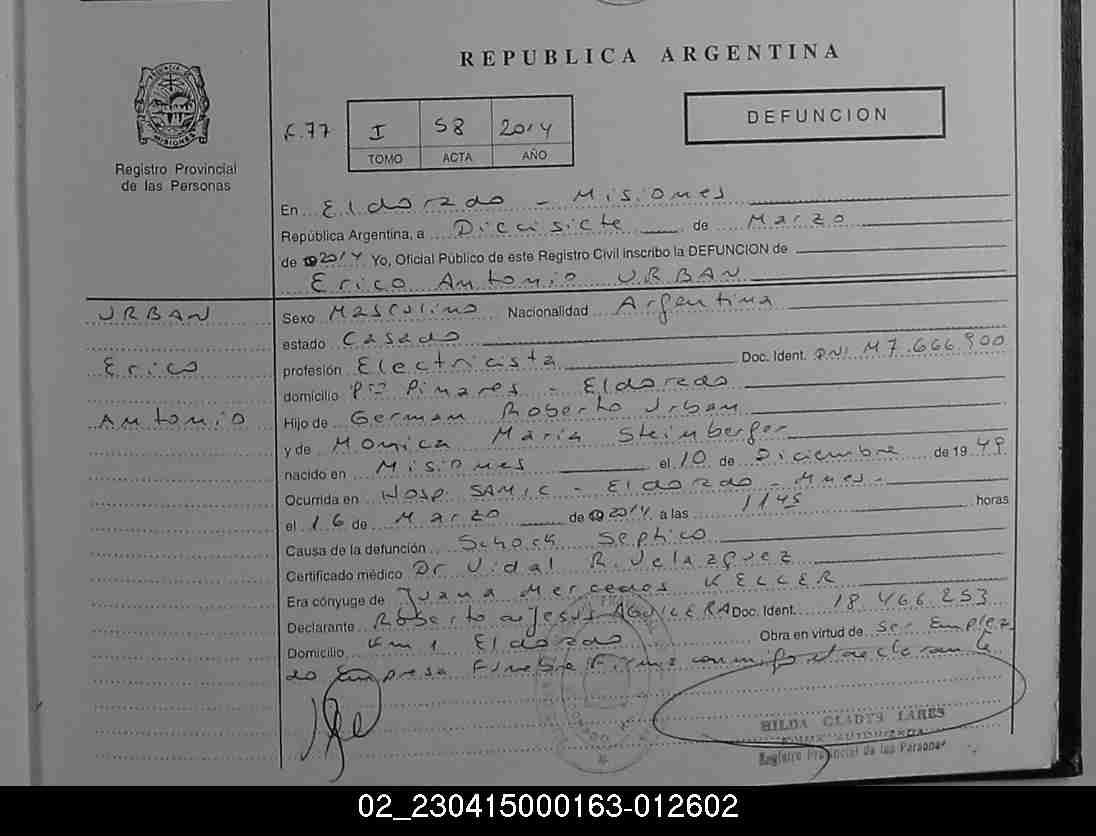 REPUBLICA ARGENTINA
PROVINCIA DE MISIONES
Registro Provincial
de las Personas
F.77
I 58 2014
TOMO ACTA AÑO
DEFUNCION
En Eldorado - Misiones
República Argentina, a Diecisiete de Marzo
de 2014 Yo, Oficial Público de este Registro Civil inscribo la DEFUNCION de
Erico Antonio URBAN
URBAN
Erico
Antonio
Sexo Masculino Nacionalidad Argentina
estado Casado
profesión Electricista Doc. Ident. DNI M7.666.900
domicilio Pº Pinares - Eldorado
Hijo de German Roberto Urban
y de Monica Maria Steinberger
nacido en Misiones el 10 de Diciembre de 1949
Ocurrida en Hosp. SAMIC - Eldorado - Mnes -
el 16 de Marzo de 2014 a las 1145 horas
Causa de la defunción Schock Septico
Certificado médico Dr Vidal R. Velazquez
Era cónyuge de Juana Mercedes KELLER
Declarante Roberto Jesus AGUILERA Doc. Ident. 18.466.253
Domicilio Km 1 Eldorado Obra en virtud de ser Emplea
do Empresa Funebre Firma conmigo el declarante
HILDA GLADYS LARES
Registro Provincial de las Personas
02_230415000163-012602